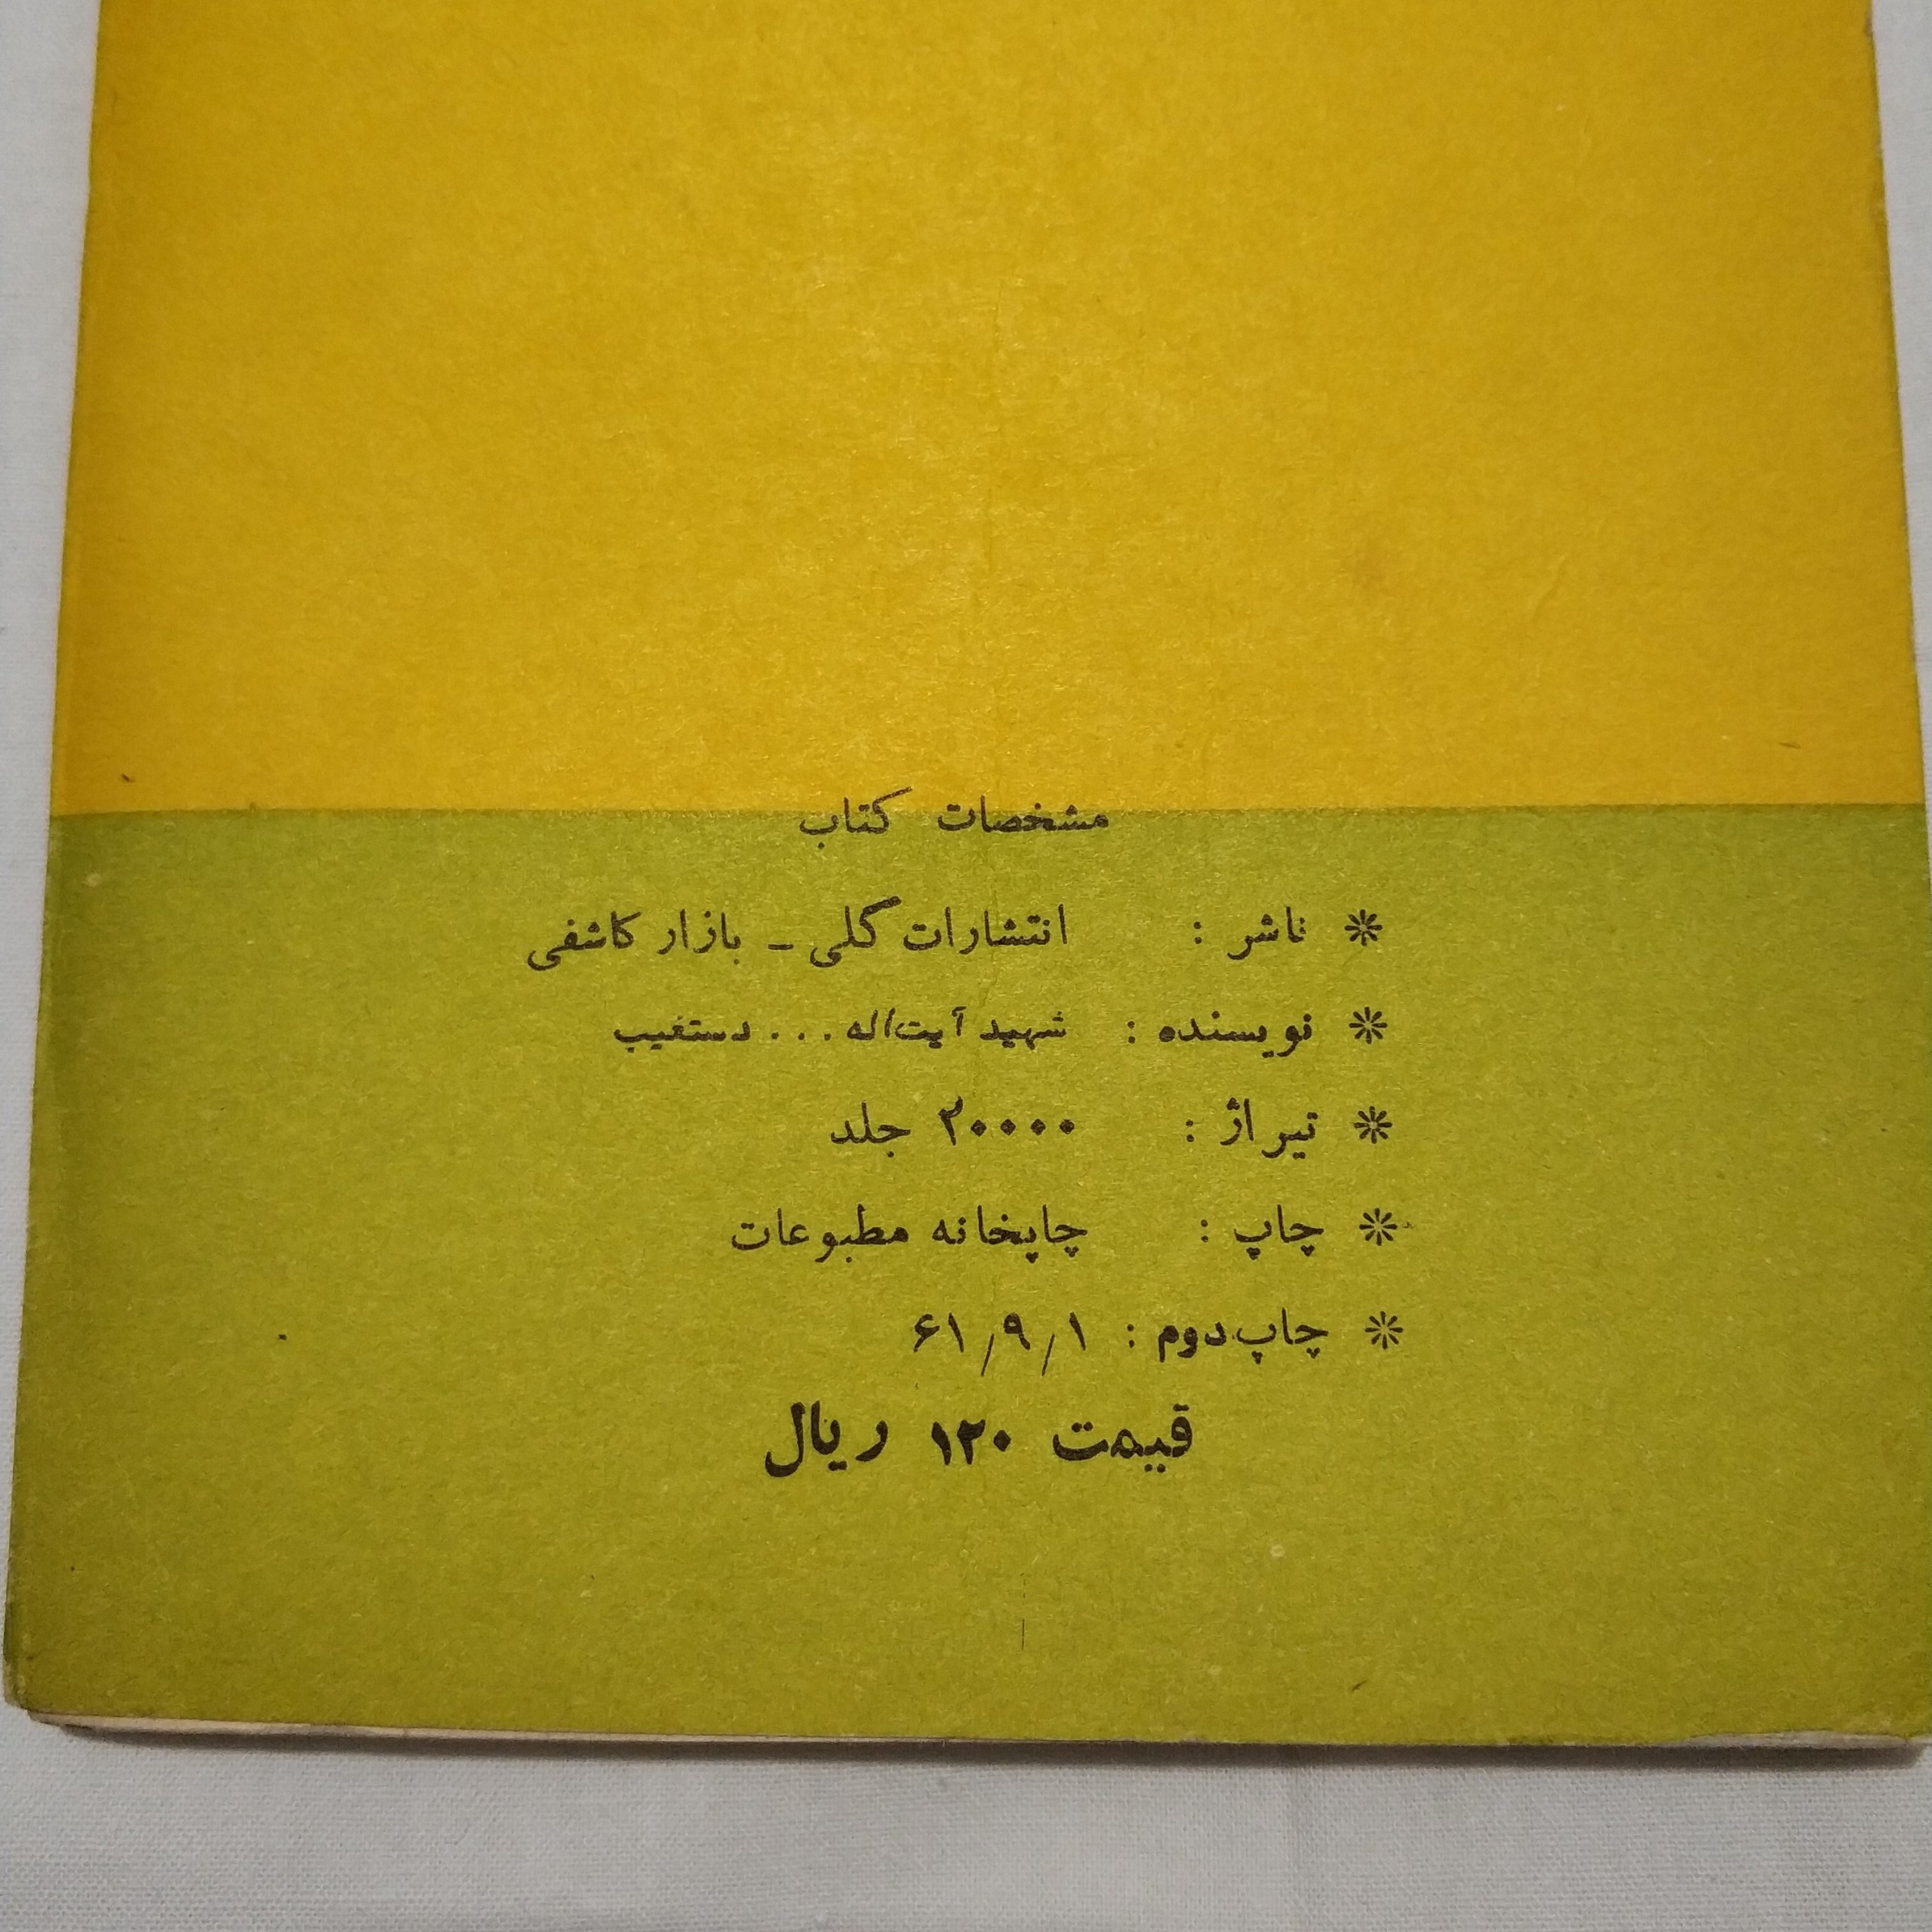 مشخصات کتاب
* ناشر : انتشارات گلی - بازار کاشفی
* نویسنده : شهید آیت‌اله . . . دستغیب
* تیراژ : ۲۰۰۰۰ جلد
* چاپ : چاپخانه مطبوعات
* چاپ دوم : ۶۱/۹/۱
قیمت ۱۲۰ ریال